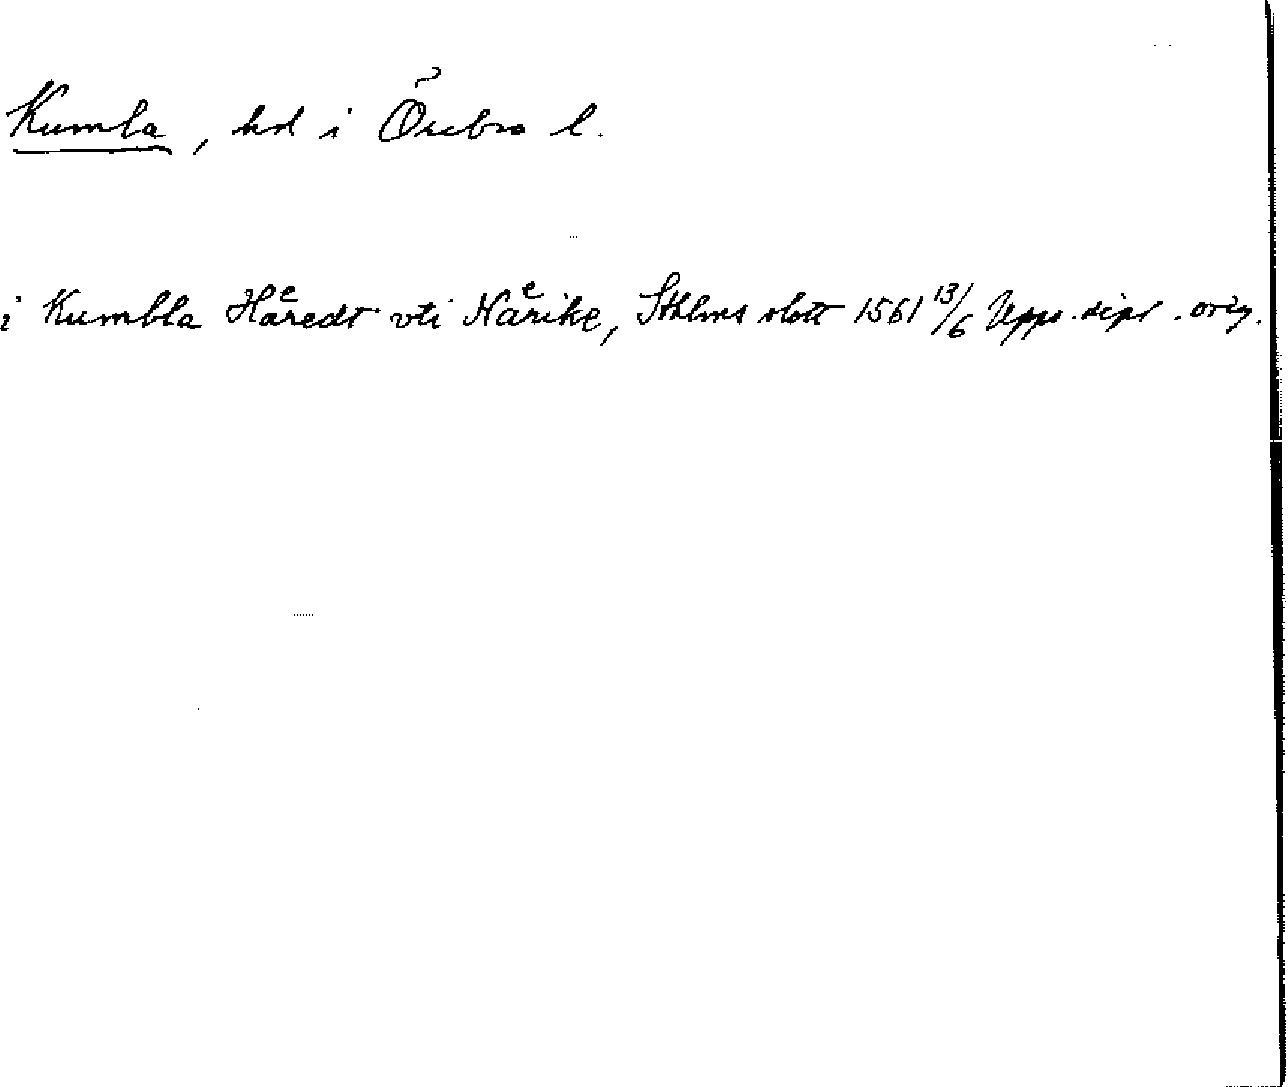 Kumla, hd i Örebro l.
i Kumbla Haͤredt vti Naͤrike, Sthlms slott 1561 13/6 Upps. dipl. orig.